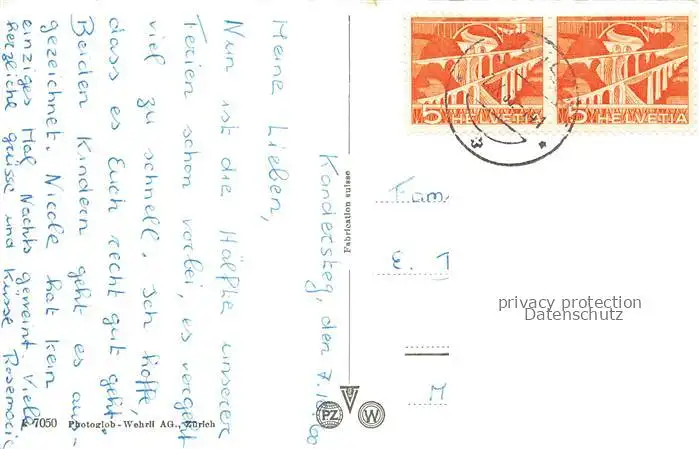 Kandersteg, den 7.10.60
Meine Lieben,
Nun ist die Hälfte unserer
Ferien schon vorbei, es vergeht
viel zu schnell. Ich hoffe,
dass es Euch recht gut geht.
Beiden Kindern geht es aus-
gezeichnet. Nicole hat kein
einziges Mal Nachts geweint. Viele
herzliche grüsse und Küsse Rosemarie
Fabrication suisse
5 HELVETIA
5 HELVETIA
Fam
E.
M
privacy protection
Datenschutz
PZ
W
7050 Photoglob-Wehrli AG., Zürich